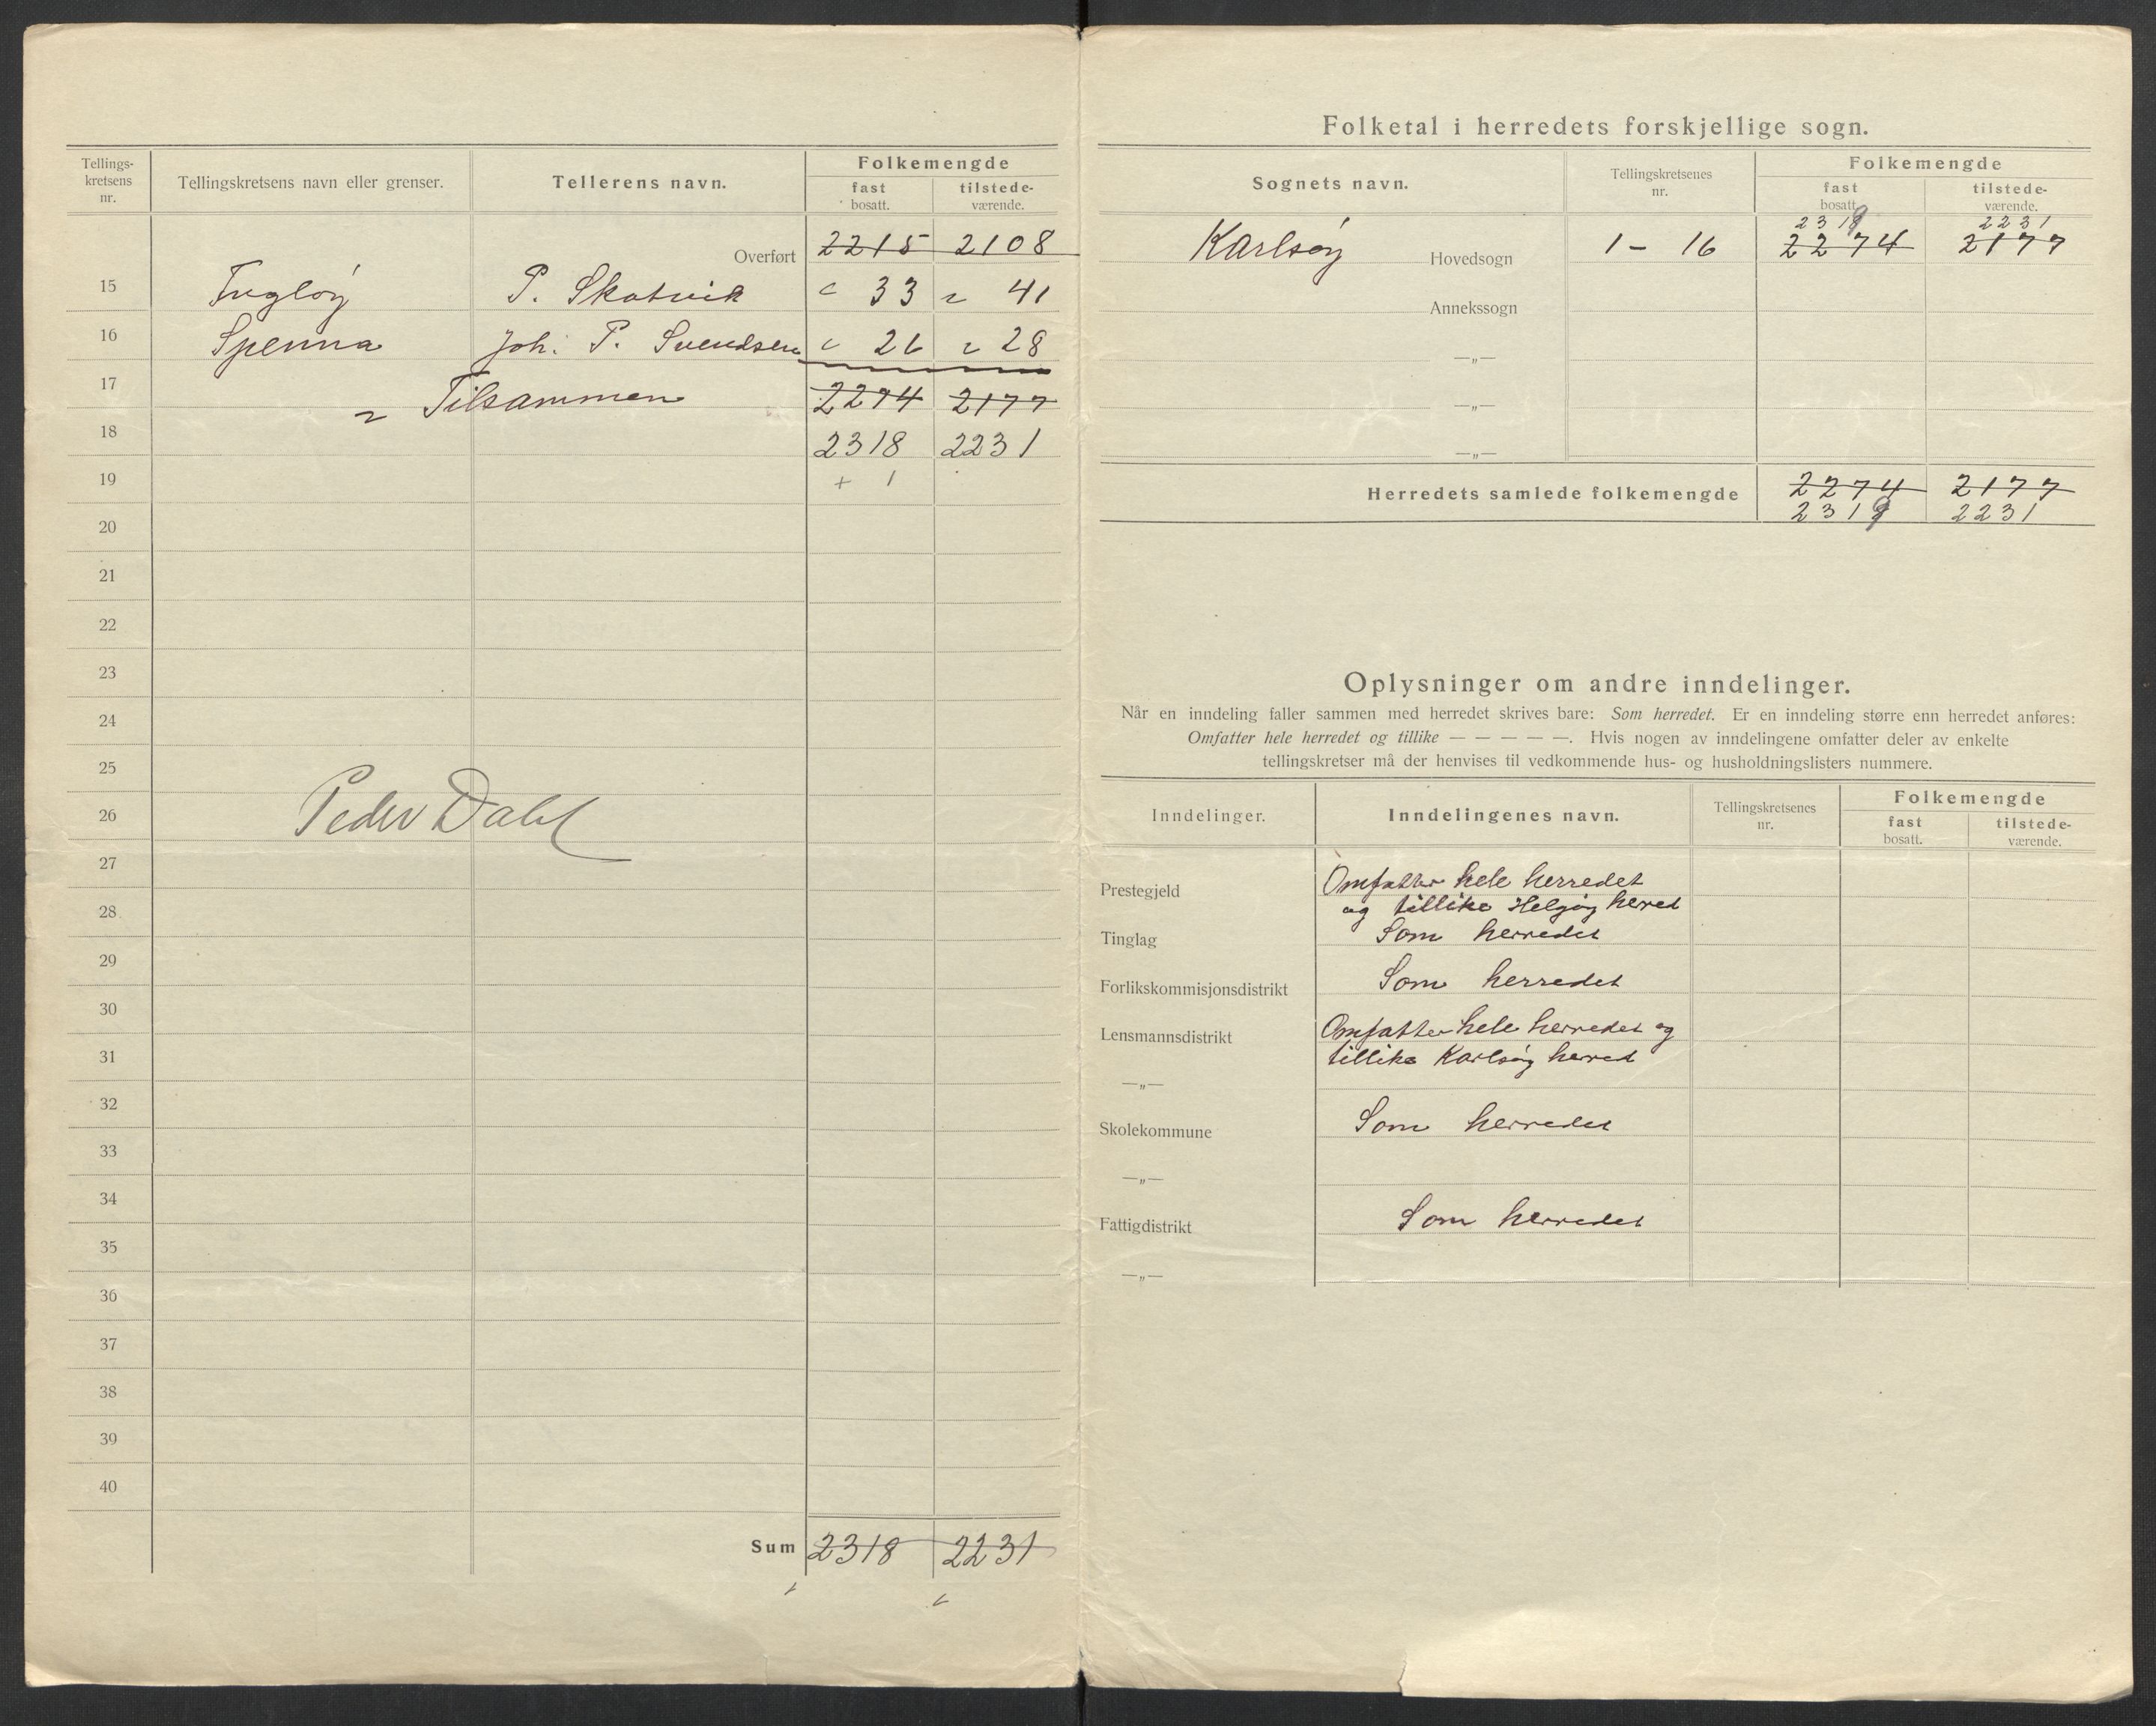 Tellings-
kretsens
nr.
Tellingskretsens navn eller grenser.
Tellerens navn.
Folkemengde
fast
bosatt.
tilstede-
værende.
Overført 2215 2108
15 Fugløy P. Skatvik 33 41
16 Spenna Joh. P. Svendsen 26 28
17 Tilsammen 2274 2177
18 2318 2231
19 + 1
20
21
22
23
24
25
26 Peder Dahl
27
28
29
30
31
32
33
34
35
36
37
38
39
40
Sum 2318 2231
Folketal i herredets forskjellige sogn.
Sognets navn.
Tellingskretsenes
nr.
Folkemengde
fast
bosatt.
tilstede-
værende.
2319 2231
Karlsøy Hovedsogn 1 - 16 2274 2177
Annekssogn
—„—
—„—
—„—
Herredets samlede folkemengde 2274 2177
2319 2231
Oplysninger om andre inndelinger.
Når en inndeling faller sammen med herredet skrives bare: Som herredet. Er en inndeling større enn herredet anføres:
Omfatter hele herredet og tillike — — — — —. Hvis nogen av inndelingene omfatter deler av enkelte
tellingskretser må der henvises til vedkommende hus- og husholdningslisters nummere.
Inndelinger.
Inndelingenes navn.
Tellingskretsenes
nr.
Folkemengde
fast
bosatt.
tilstede-
værende.
Prestegjeld Omfatter hele herredet
og tillike Helgøy herred
Tinglag Som herredet
Forlikskommisjonsdistrikt Som herredet
Lensmannsdistrikt Omfatter hele herredet og
tillike Karlsøy herred
—„—
Skolekommune Som herredet
—„—
Fattigdistrikt Som herredet
—„—